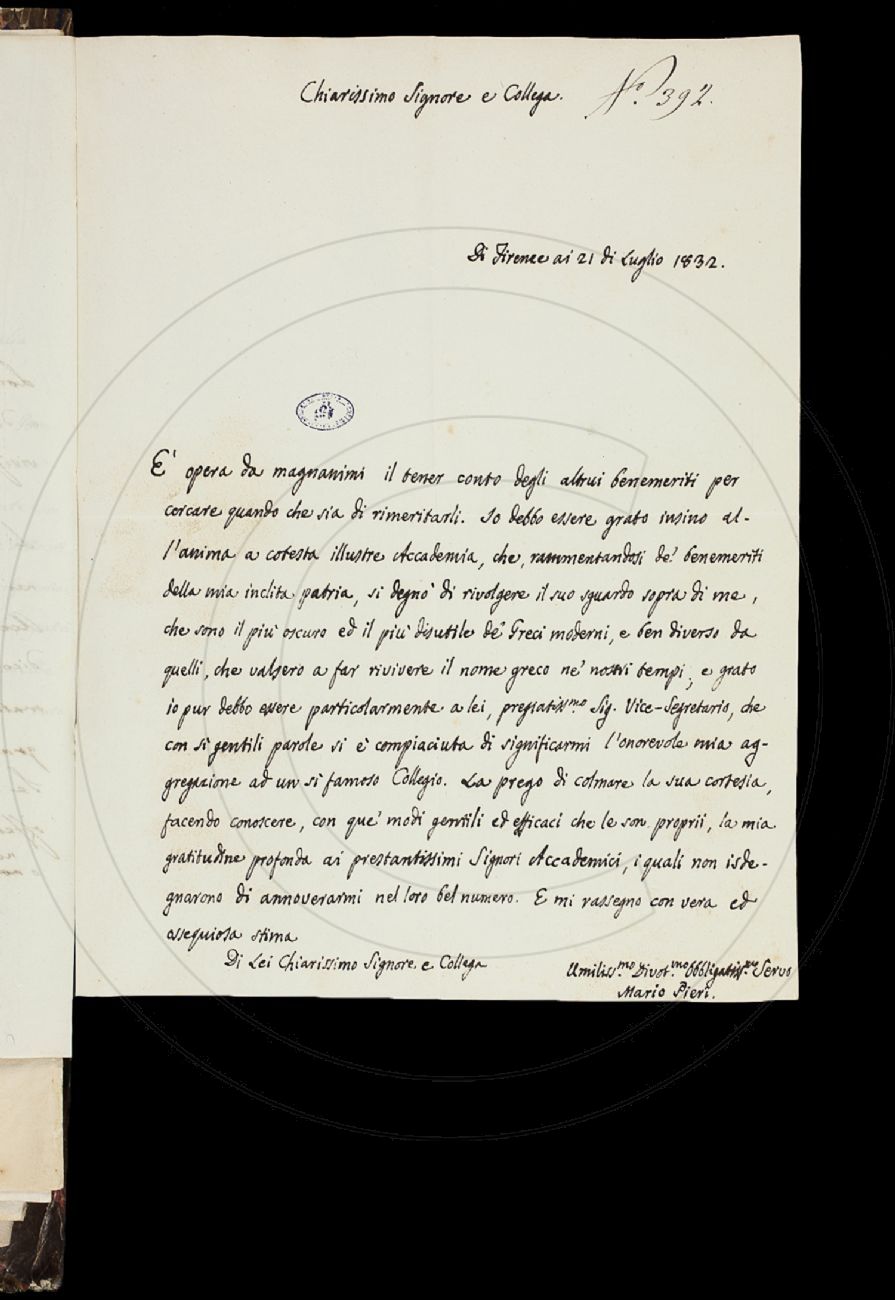 Chiarissimo Signore e Collega.
N.º 392.
Di Firenze ai 21 di Luglio 1832.
E' opera da magnanimi il tener conto degli altrui benemeriti per
cercare quando che sia di rimeritarli. Io debbo essere grato insino al-
l'anima a cotesta illustre Accademia, che, rammentandosi de' benemeriti
della mia inclita patria, si degnò di rivolgere il suo sguardo sopra di me,
che sono il più oscuro ed il più disutile de' Greci moderni, e ben diverso da
quelli, che valsero a far rivivere il nome greco ne' nostri tempi; e grato
io pur debbo essere particolarmente a lei, pregiatiss.mo Sig. Vice-Segretario, che
con sì gentili parole si è compiaciuta di significarmi l'onorevole mia ag-
gregazione ad un sì famoso Collegio. La prego di colmare la sua cortesia,
facendo conoscere, con que' modi gentili ed efficaci che le son proprii, la mia
gratitudine profonda ai prestantissimi Signori Accademici, i quali non isde-
gnarono di annoverarmi nel loro bel numero. E mi rassegno con vera ed
ossequiosa stima
Di Lei Chiarissimo Signore e Collega
Umiliss.mo Divot.mo Obbligatiss.mo Servo
Mario Pieri.